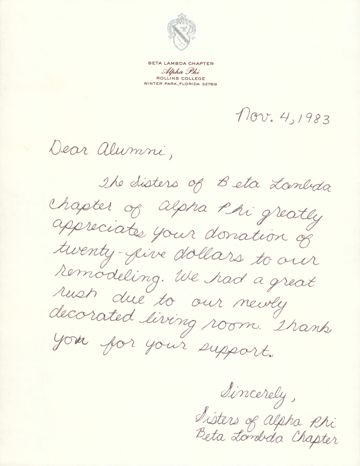 BETA LAMBDA CHAPTER
Alpha Phi
ROLLINS COLLEGE
WINTER PARK, FLORIDA 32789
Nov. 4, 1983
Dear Alumni,
The Sisters of Beta Lambda
Chapter of Alpha Phi greatly
appreciates your donation of
twenty-five dollars to our
remodeling. We had a great
rush due to our newly
decorated living room. Thank
you for your support.
Sincerely,
Sisters of Alpha Phi
Beta Lambda Chapter